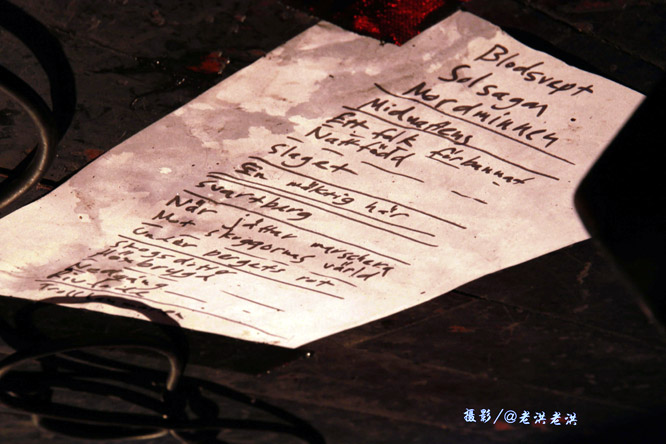 Blodsvept
Solsagan
Mordminnen
Midnattens
Ett folk förbannat
Nattfödd
Slaget
En mäktig här
Svartberg
När jättar marschera
Mot skuggornas värld
Under bergets rot
Skogsdotter
Häxbrygd
摄影/@老洪老洪